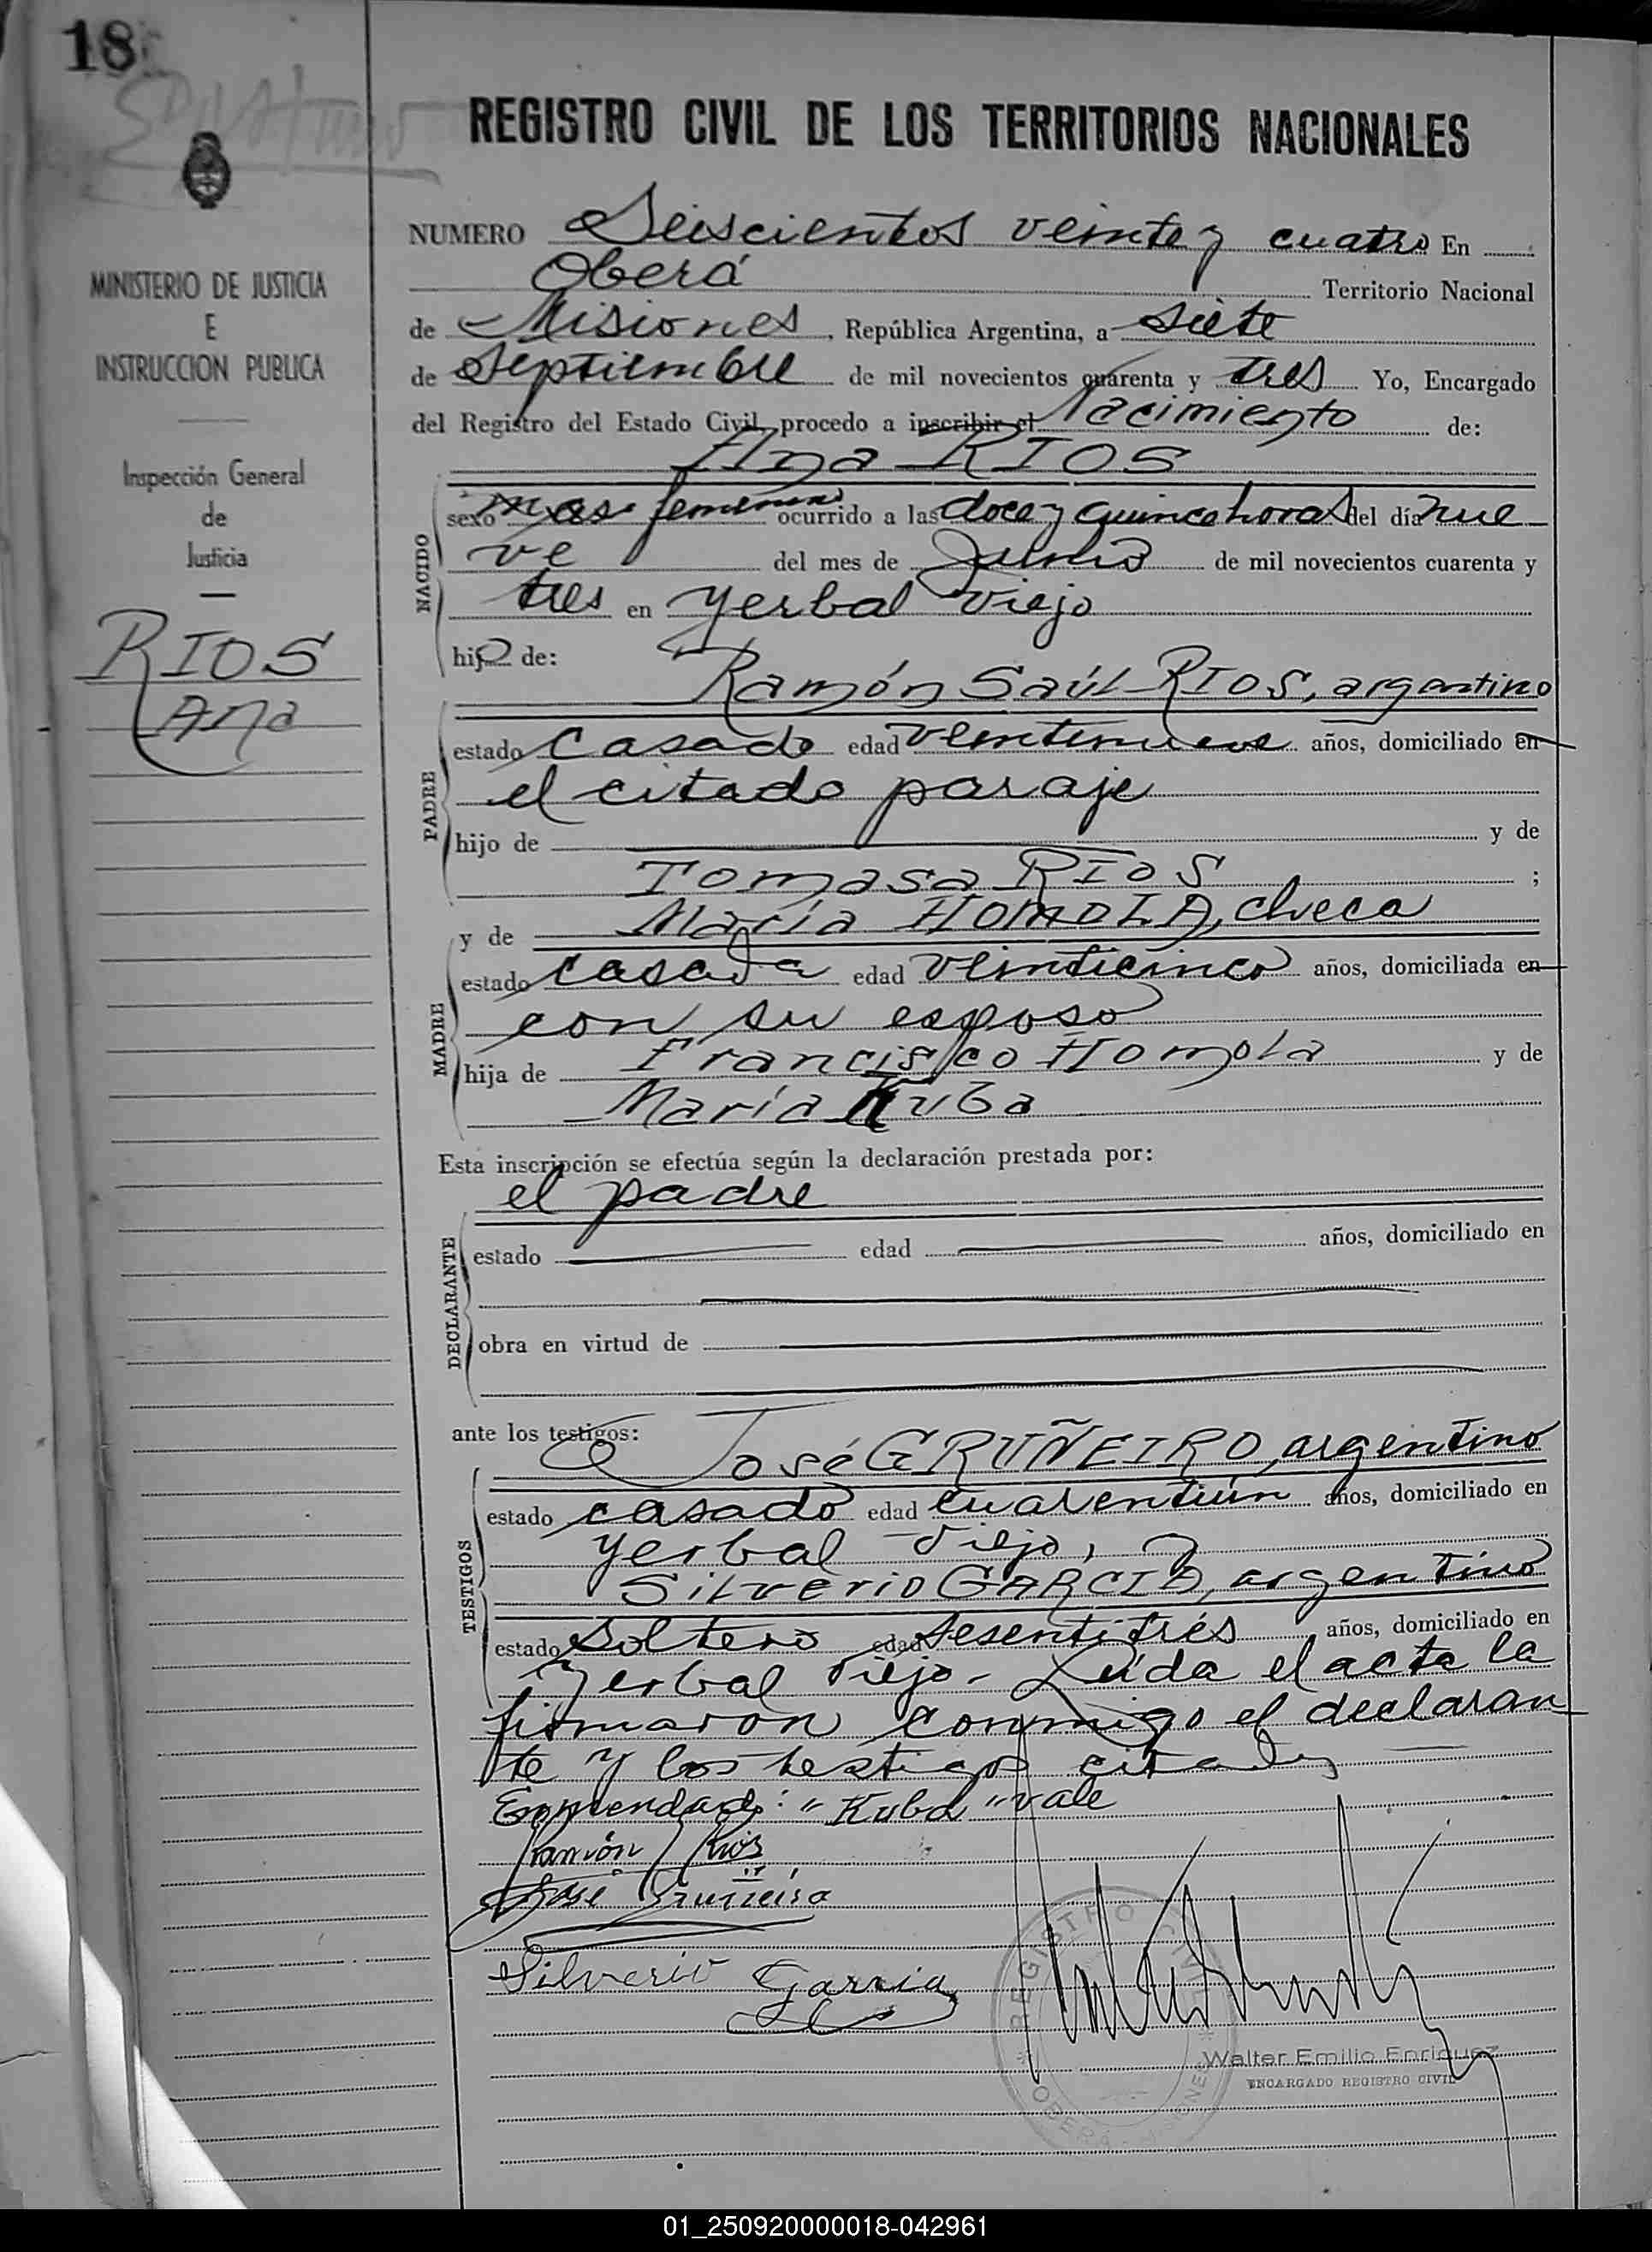 18
REGISTRO CIVIL DE LOS TERRITORIOS NACIONALES
MINISTERIO DE JUSTICIA
E
INSTRUCCION PUBLICA
Inspección General
de
Justicia
RIOS
Ana
NUMERO Seiscientos veinte y cuatro En
Oberá Territorio Nacional
de Misiones, República Argentina, a siete
de Septiembre de mil novecientos cuarenta y tres Yo, Encargado
del Registro del Estado Civil, procedo a inscribir el Nacimiento de:
Ana RIOS
NACIDO
sexo masc femenino ocurrido a las doce y quince horas del día nue
ve del mes de Junio de mil novecientos cuarenta y
tres en Yerbal Viejo
hijo de:
Ramón Saúl RIOS, argentino
PADRE
estado casado edad veintinueve años, domiciliado en
el citado paraje
hijo de y de
Tomasa RIOS ;
y de María HOMOLA, checa
MADRE
estado casada edad veinticinco años, domiciliada en
con su esposo
hija de Francisco Homola y de
María Kuba
Esta inscripción se efectúa según la declaración prestada por:
el padre
DECLARANTE
estado edad años, domiciliado en
obra en virtud de
ante los testigos:
José GRUÑEIRO, argentino
TESTIGOS
estado casado edad cuarentiún años, domiciliado en
Yerbal Viejo, y
Silverio GARCIA, argentino
estado Soltero edad sesentitrés años, domiciliado en
Yerbal Viejo- Leída el acta la
firmaron conmigo el declaran
te y los testigos citados
Enmendado: "Kuba" vale
Ramón Rios
José Gruñeiro
Silverio Garcia
REGISTRO CIVIL
OBERÁ MISIONES
Walter Emilio Enriquez
ENCARGADO REGISTRO CIVIL
01_250920000018-042961